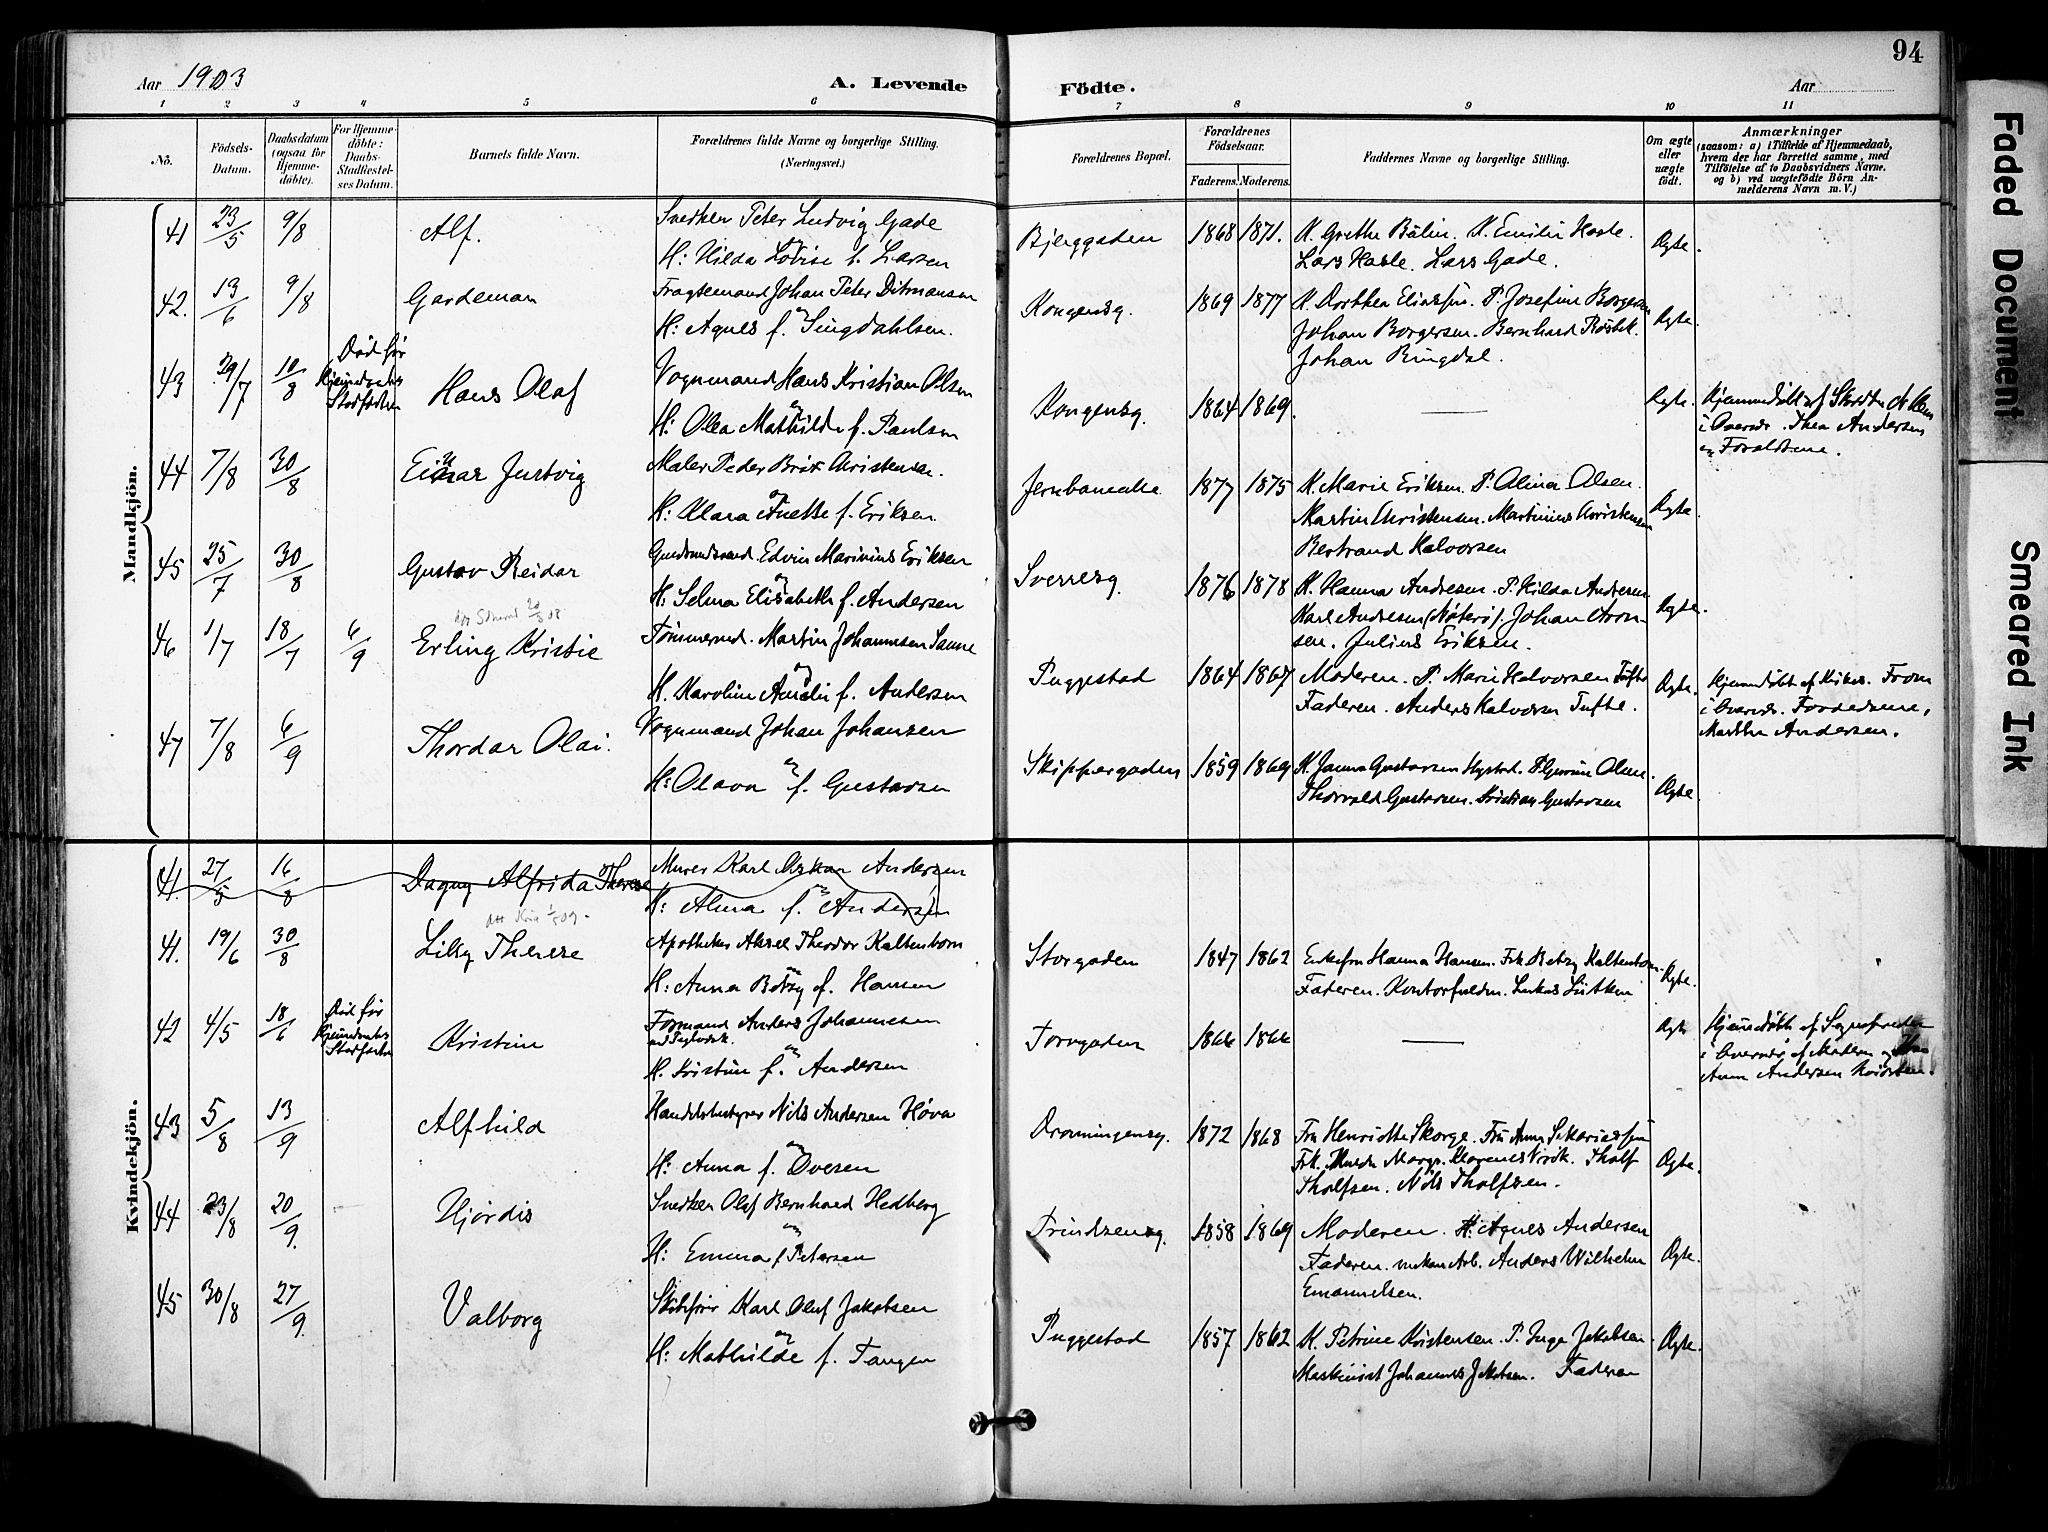 94
Aar 1903
A. Levende
Födte.
Aar
1 2 3 4 5 6 7 8 9 10 11
No.
Födsels-Datum.
Daabsdatum (ogsaa for Hjemme-döbte).
For Hjemme-döbte: Daabs-Stadfæstel-ses Datum.
Barnets fulde Navn.
Forældrenes fulde Navne og borgerlige Stilling. (Næringsvei.)
Forældrenes Bopæl.
Forældrenes Födselsaar.
Faderens. Moderens.
Faddernes Navne og borgerlige Stilling.
Om ægte eller uægte födt.
Anmærkninger
(saasom: a) i Tilfælde af Hjemmedaab, hvem der har forrettet samme, med Tilföielse af to Daabsvidners Navne, og b) ved uægtefödte Börn An-melderens Navn m. V.)
Mandkjön.
41 23/5 9/8 Alf. Snedker Peter Ludvig Gade
H: Hilda Lovise f. Larsen
Bjerggaden 1868 1871. K. Grethe Bülin. P. Emilie Hasle.
Lars Hasle. Lars Gade. Ægte.
42. 13/6 9/8 Gardeman Fragtemand Johan Peter Ditmansen
H: Agnes f. Singdahlsen.
Kongensg. 1869 1877 K. Dorthea P. Josefine
Johan Borgersen. Bernhard
Johan Ringdal. Ægte.
43 29/7 10/8 Död før Hjemmedaabs Stadfæstelsen Hans Olaf Vognmand Hans Kristian Olsen
H: Olea Mathilde f. Paulsen
Kongensg. 1864 1869. — Ægte. Hjemmedøbt af
Thea Andersen
og Forældrene.
44 7/8 30/8 Einar Justvig Maler Peder Brix Christensen.
H: Klara Anette f. Eriksen.
Jernbanealle 1877 1875 K. Marie Eriksen. P. Alina Olsen.
Martin Christensen. Martinius Christensen
Bertrand Halvorsen Ægte.
45 25/7 30/8 Gustav Reidar Edvin Marinius Eriksen
H: Selma Elisabeth f. Andersen
Sverresg. 1876 1878 K. Hanna Andresen. P. Hilda Andresen
Karl Andresen (Nøterø). Johan Aron-
sen. Julius Eriksen. Ægte.
46 1/7 18/7 6/9 Erling Kristie Tømmermd. Martin Johannesen Sanne
H. Karoline Amalie f. Andersen
Puggestad 1864 1867 Moderen. P. Marie Halvorsen Tufte
Faderen. Anders Halvorsen Tufte. Ægte. Hjemmedøbt af
Martha Andersen.
47 7/8 6/9 Thordar Olai. Vognmand Johan Johansen
H: Olava f. Gustavsen
Skippergaden 1859 1869 K. Janna Gustavsen P. Olsen.
Thorvald Gustavsen. Kristian Gustavsen Ægte.
Kvindekjön.
41. 27/5 16/8 Dagny Alfrida Therese Murer Karl Oskar Andersen
H: Alma f. Andersen
41. 19/6 30/8 Lilly Therese Apotheker Aksel Theodor Kaltenborn
H: Anna Betzy f. Hansen
Storgaden 1847 1862 Enkefru Hanna Hansen. Frk Betzy Kaltenborn.
Faderen. Kontorfuldm. Lukas Lütken Ægte.
42 4/5 18/6 Død før Hjemmedaabs Stadfæstelsen Kristine Formand Anders Johannesen
ved Teglværk.
H. Kristine f. Andersen
Torvgaden 1866 1866 — Ægte Hjemmedøbt af Sognepresten
43 5/8 13/9 Alfhild Handelsbestyrer Nils Andersen Høva
H: Anna f. Ovesen
Dronningensg. 1872 1868 Fru Henriette Skorge. Fru Anna Sakariassen
Frk. Marg. Tholf
Tholfsen. Nils Tholfsen. Ægte.
44 23/8 20/9. Hjørdis Snedker Olaf Bernhard Hedberg
H: Emma f. Petersen
Trindsensg. 1858 1869 Moderen. H: Agnes Andersen
Faderen. Arb. Anders Wilhelm
Emanuelsen. Ægte.
45 30/8 27/9. Valborg Skibsfører Karl Oluf Jakobsen
H: Mathilde f. Tangen
Puggestad 1857 1862 K. Petrine Kristensen. P. Inga Jakobsen.
Maskinist Johannes Jakobsen. Faderen Ægte.
Faded Document
Smeared Ink